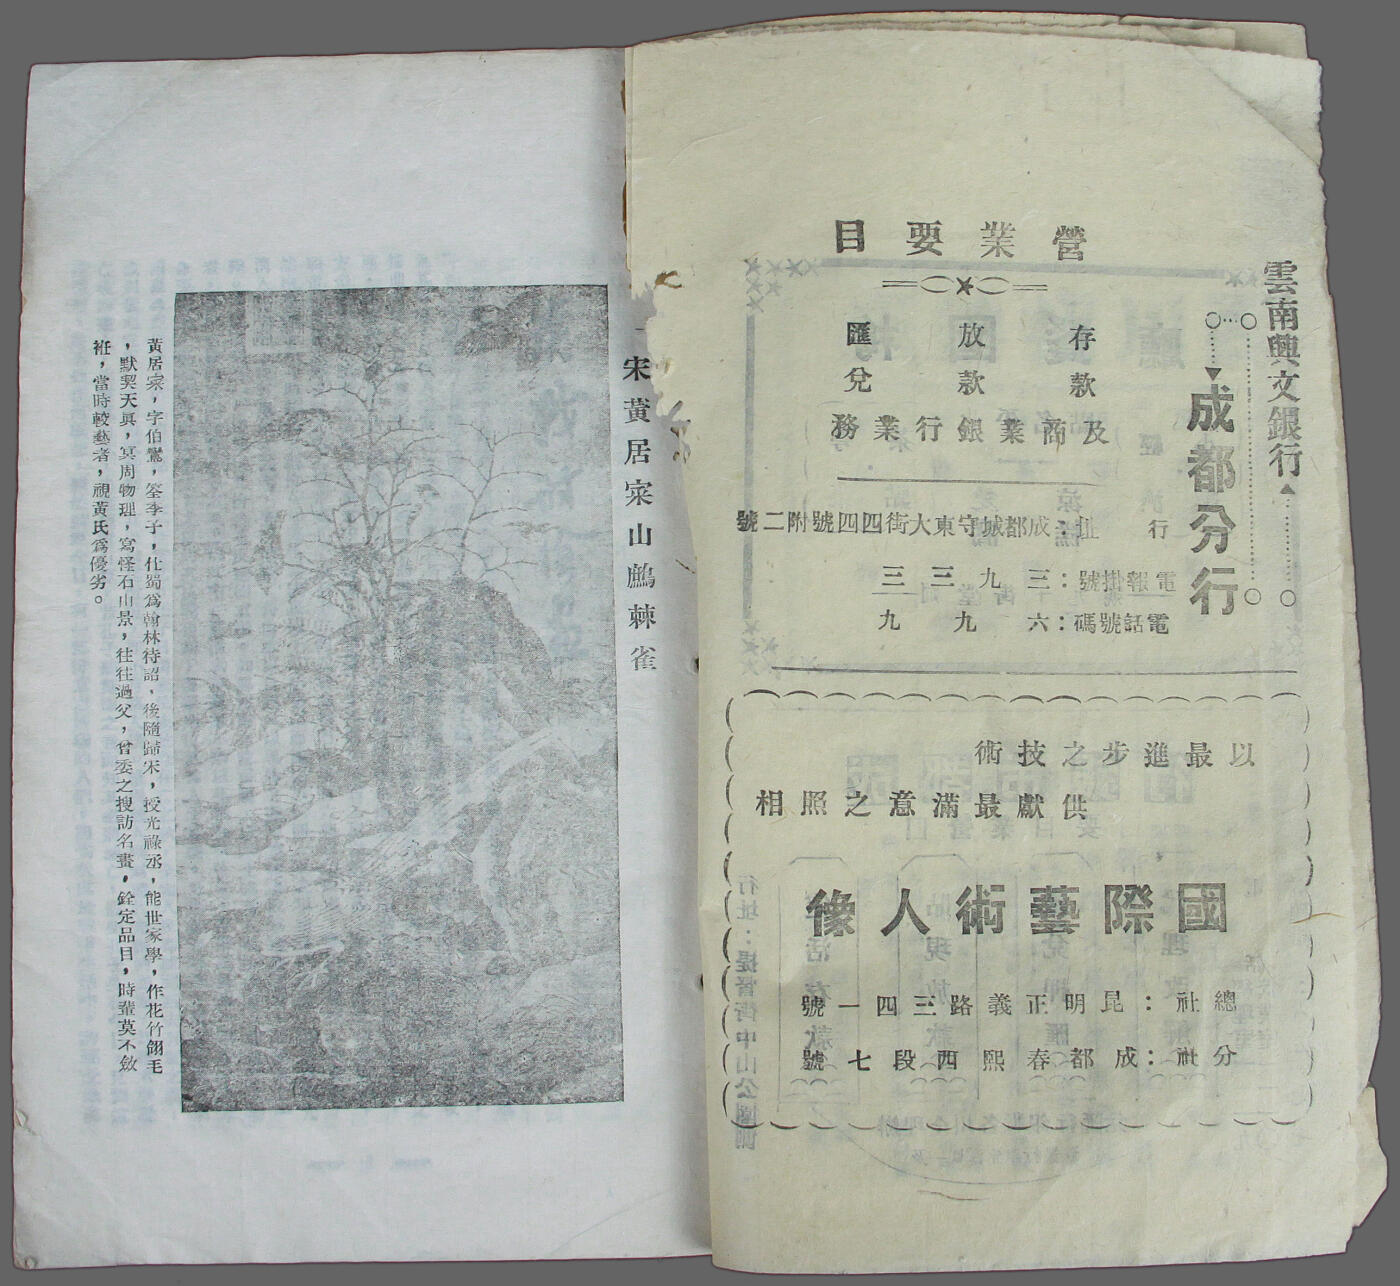 雲南興文銀行
成都分行
營業要目
存款
放款
匯兌
及商業銀行業務
行址：成都城守東大街四四號附二號
電報掛號：三九三三
電話號碼：六九九
以最進步之技術
供獻最滿意之照相
國際藝術人像
總社：昆明正義路三四一號
分社：成都春熙西段七號
宋黃居寀山鷓棘雀
黃居寀，字伯鸞，筌季子，仕蜀爲翰林待詔，後隨歸宋，授光祿丞，能世家學，作花竹翎毛
，默契天真，冥周物理，寫怪石山景，往往過父，曾委之搜訪名畫，銓定品目，時輩莫不斂
衽，當時較藝者，視黃氏爲優劣。